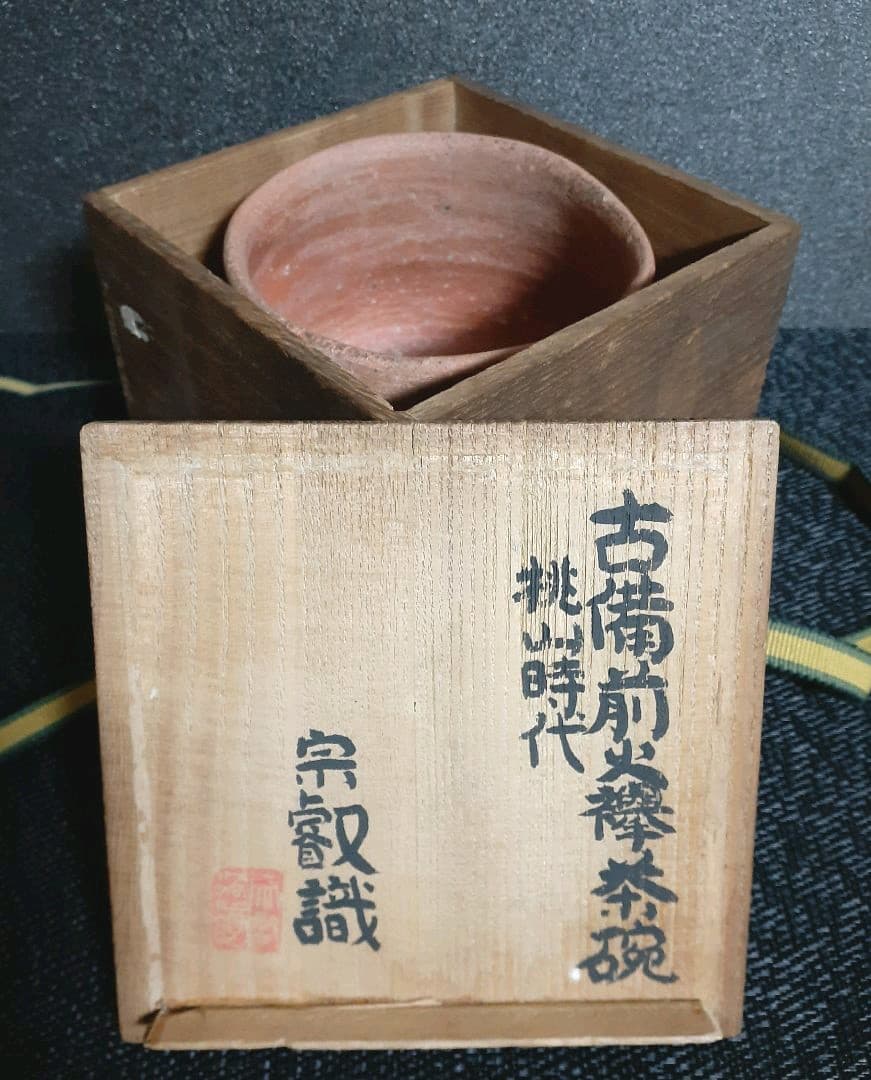 古備前火襷茶碗
桃山時代
宗叡識